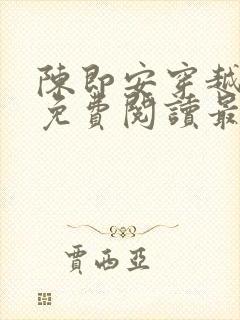 陳即安穿越
免費閱讀最
賈西亞